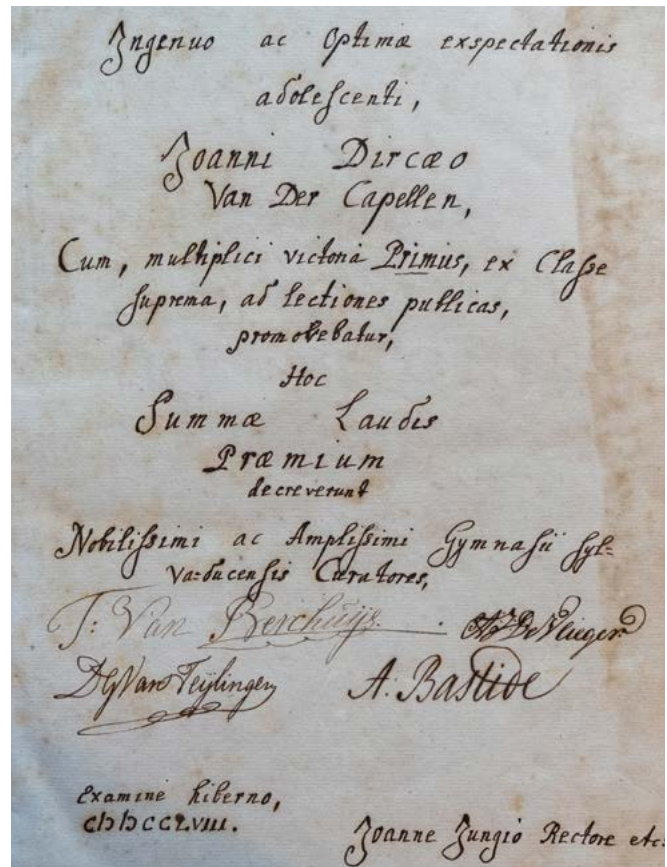 Ingenuo ac Optimæ exspectationis
adolescenti,
Joanni Dircæo
Van Der Capellen,
Cum, multiplici victoria Primus, ex Classe
suprema, ad lectiones publicas,
promovebatur,
Hoc
Summæ Laudis
Præmium
decreverunt
Nobilissimi ac Amplissimi Gymnasii Syl=
va=ducensis Curatores,
J: Van Berchuijs. De Vlieger
DG Van Teijlingen A: Bastide
Examine hiberno,
cIↃIↃCCLVIII.
Joanne Jungio Rectore etc: